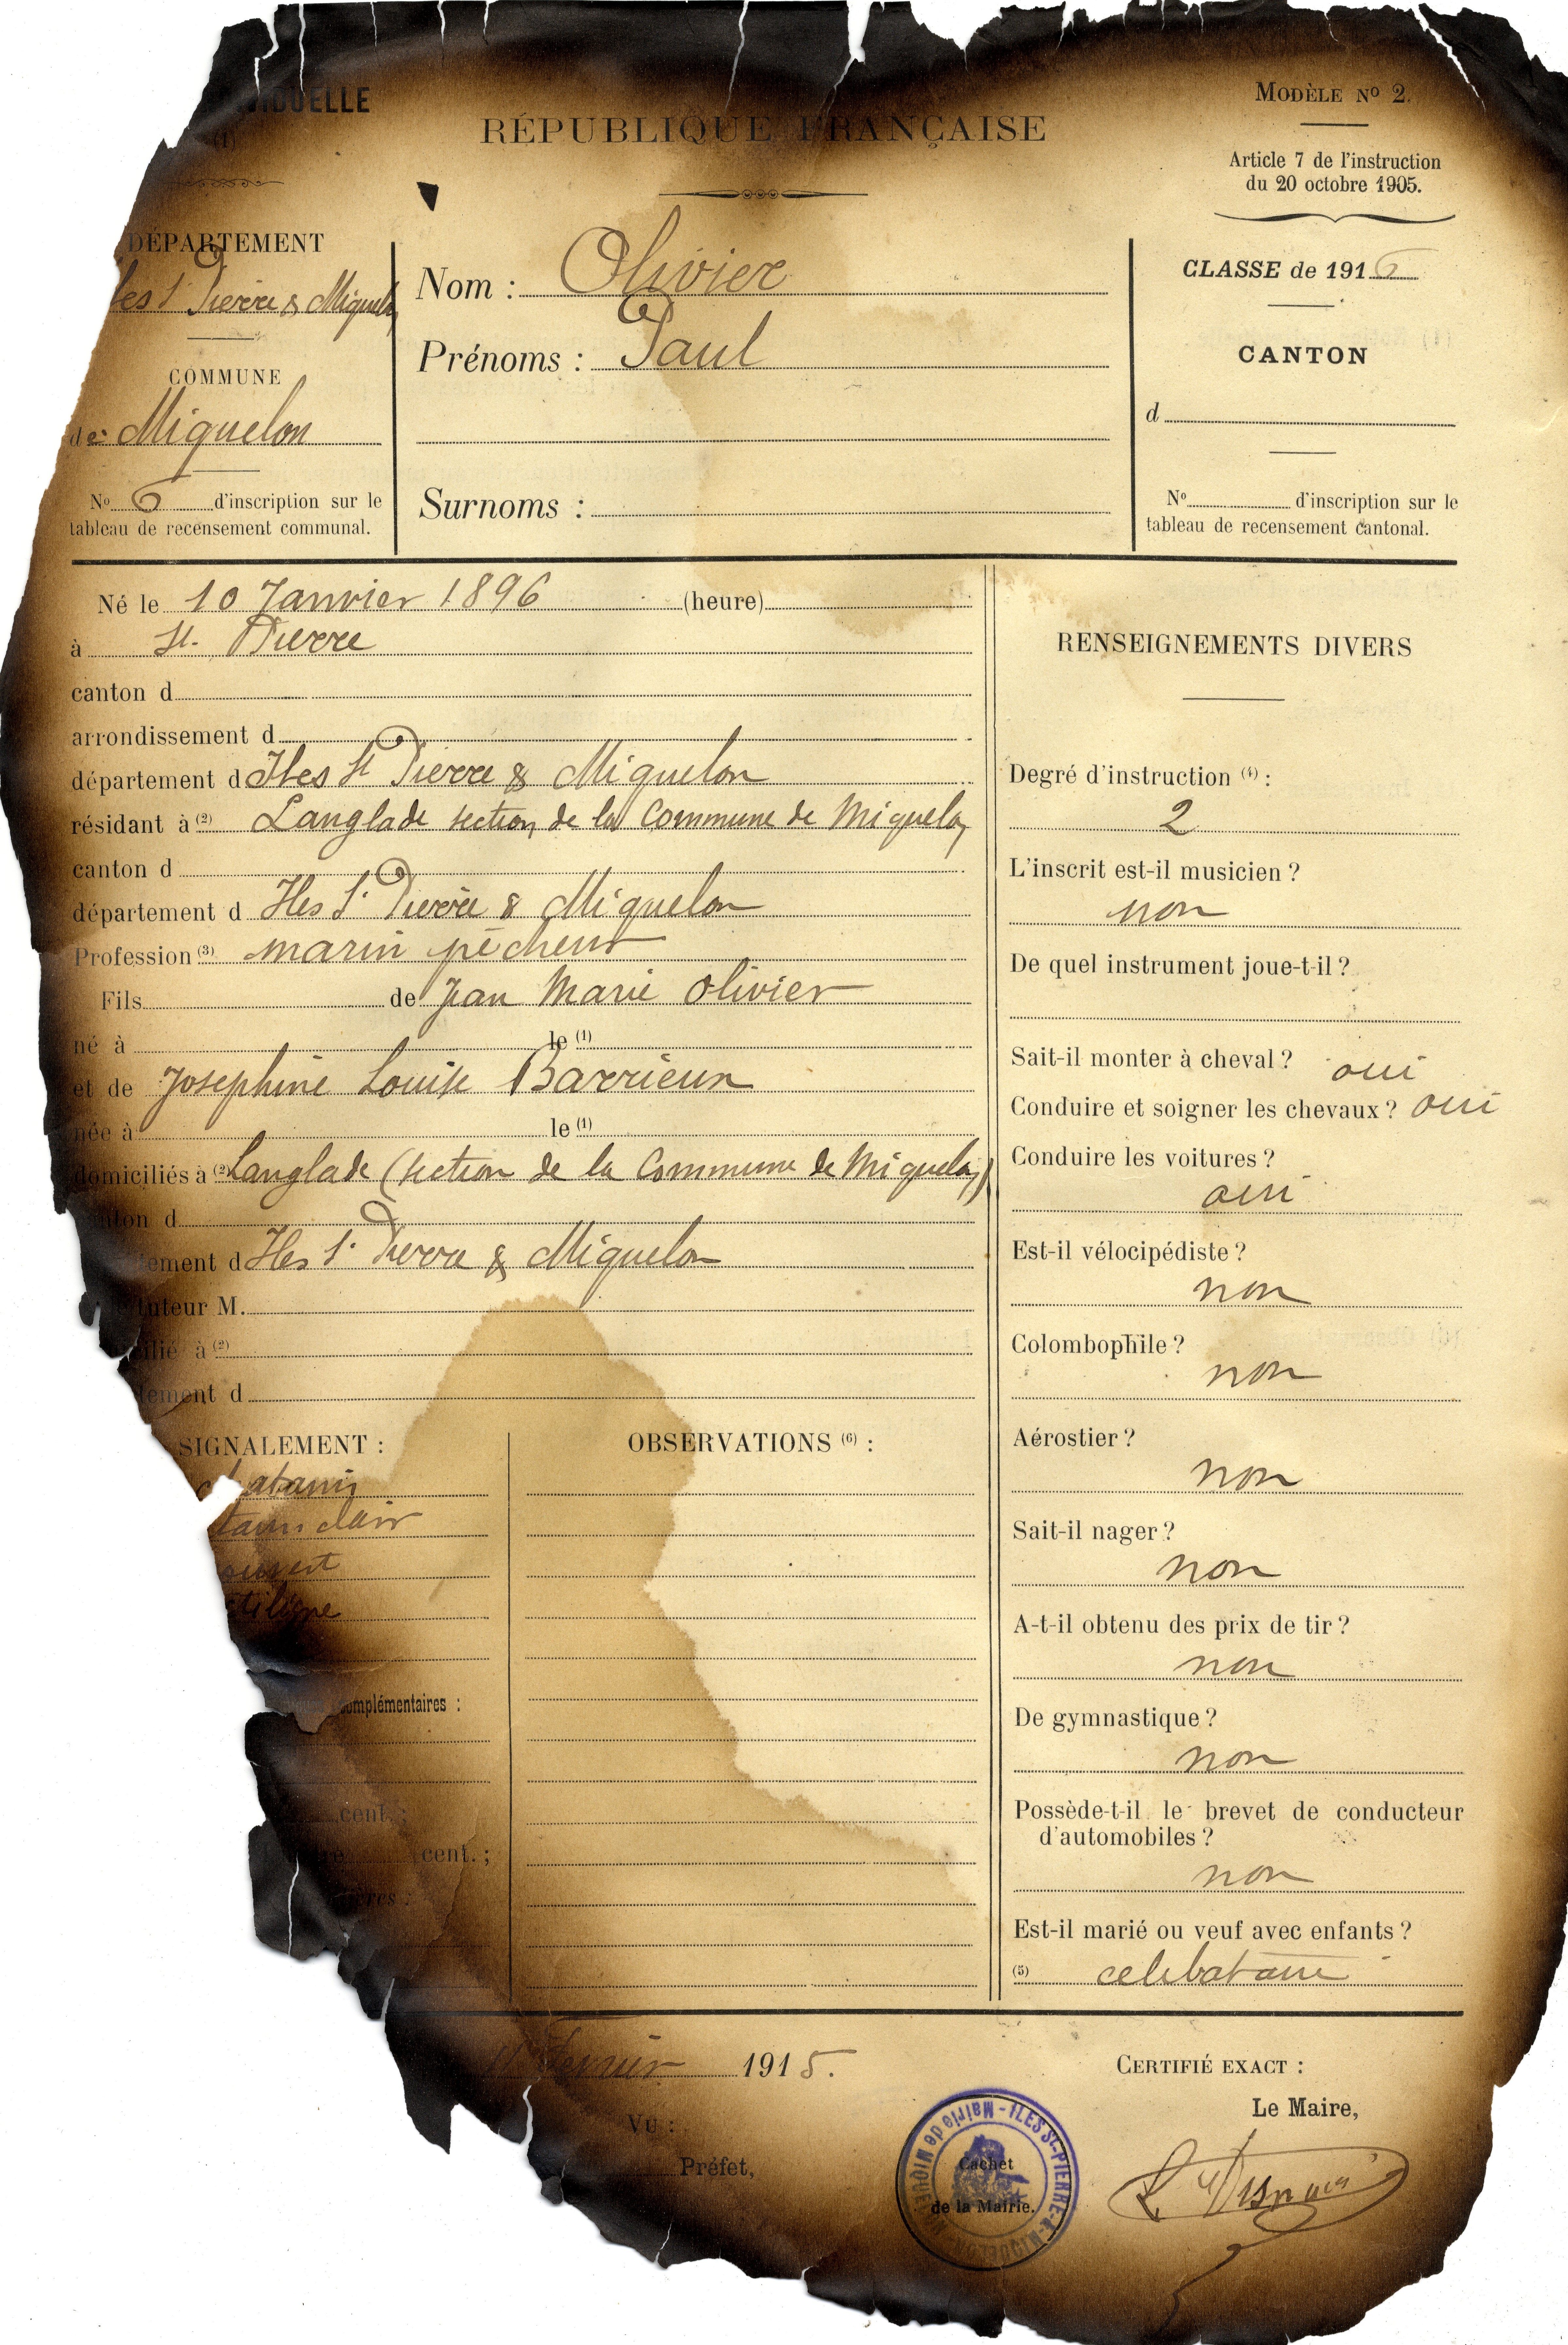 MODÈLE Nº 2.
RÉPUBLIQUE FRANÇAISE
(1)
Article 7 de l'instruction
du 20 octobre 1905.
DÉPARTEMENT
Pierre & Miquelon
COMMUNE
de Miquelon
Nº 6 d'inscription sur le
tableau de recensement communal.
Nom : Olivier
Prénoms : Paul
Surnoms :
CLASSE de 1916
CANTON
d
Nº d'inscription sur le
tableau de recensement cantonal.
Né le 10 Janvier 1896 (heure)
à St. Pierre
canton d
arrondissement d
département d Iles St Pierre & Miquelon
résidant à (2) Langlade section de la Commune de Miquelon
canton d
département d Iles St Pierre & Miquelon
Profession (3) marin pêcheur
Fils de Jean Marie Olivier
né à le (1)
et de Josephine Louise Barrieun
née à le (1)
domiciliés à (2) Langlade (section de la Commune de Miquelon)
canton d
Iles St Pierre & Miquelon
tuteur M.
à (2)
d
SIGNALEMENT :
clair
OBSERVATIONS (6) :
complémentaires :
cent. ;
cent. ;
RENSEIGNEMENTS DIVERS
Degré d'instruction (4) :
2
L'inscrit est-il musicien ?
non
De quel instrument joue-t-il ?
Sait-il monter à cheval ? oui
Conduire et soigner les chevaux ? oui
Conduire les voitures ?
oui
Est-il vélocipédiste ?
non
Colombophile ?
non
Aérostier ?
non
Sait-il nager ?
non
A-t-il obtenu des prix de tir ?
non
De gymnastique ?
non
Possède-t-il le brevet de conducteur
d'automobiles ?
non
Est-il marié ou veuf avec enfants ?
(5) celibataire
1915.
Vu :
Préfet,
CERTIFIÉ EXACT :
Le Maire,
Mairie de MIQUELON - ILES St-PIERRE-&-MIQUELON
Cachet
de la Mairie.